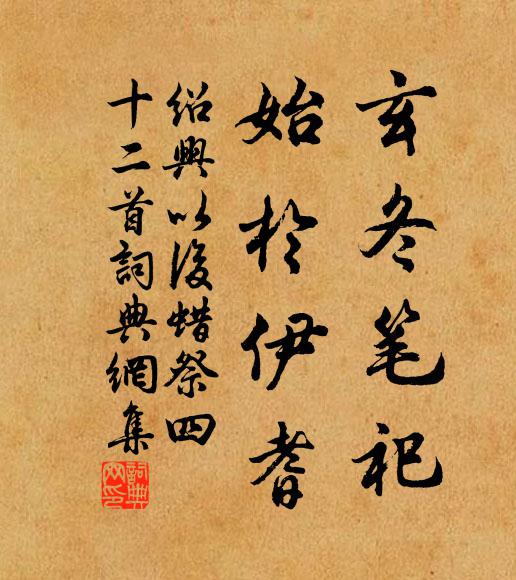 玄冬笔祀
始於伊耆
紹興以後蜡祭四
十二首詞典網集